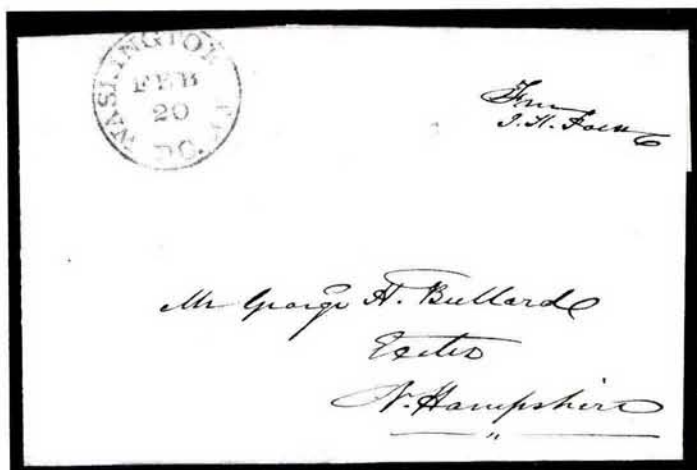 WASHINGTON
FEB
20
D.C.
Mr George H. Bullard
Exeter
N. Hampshire